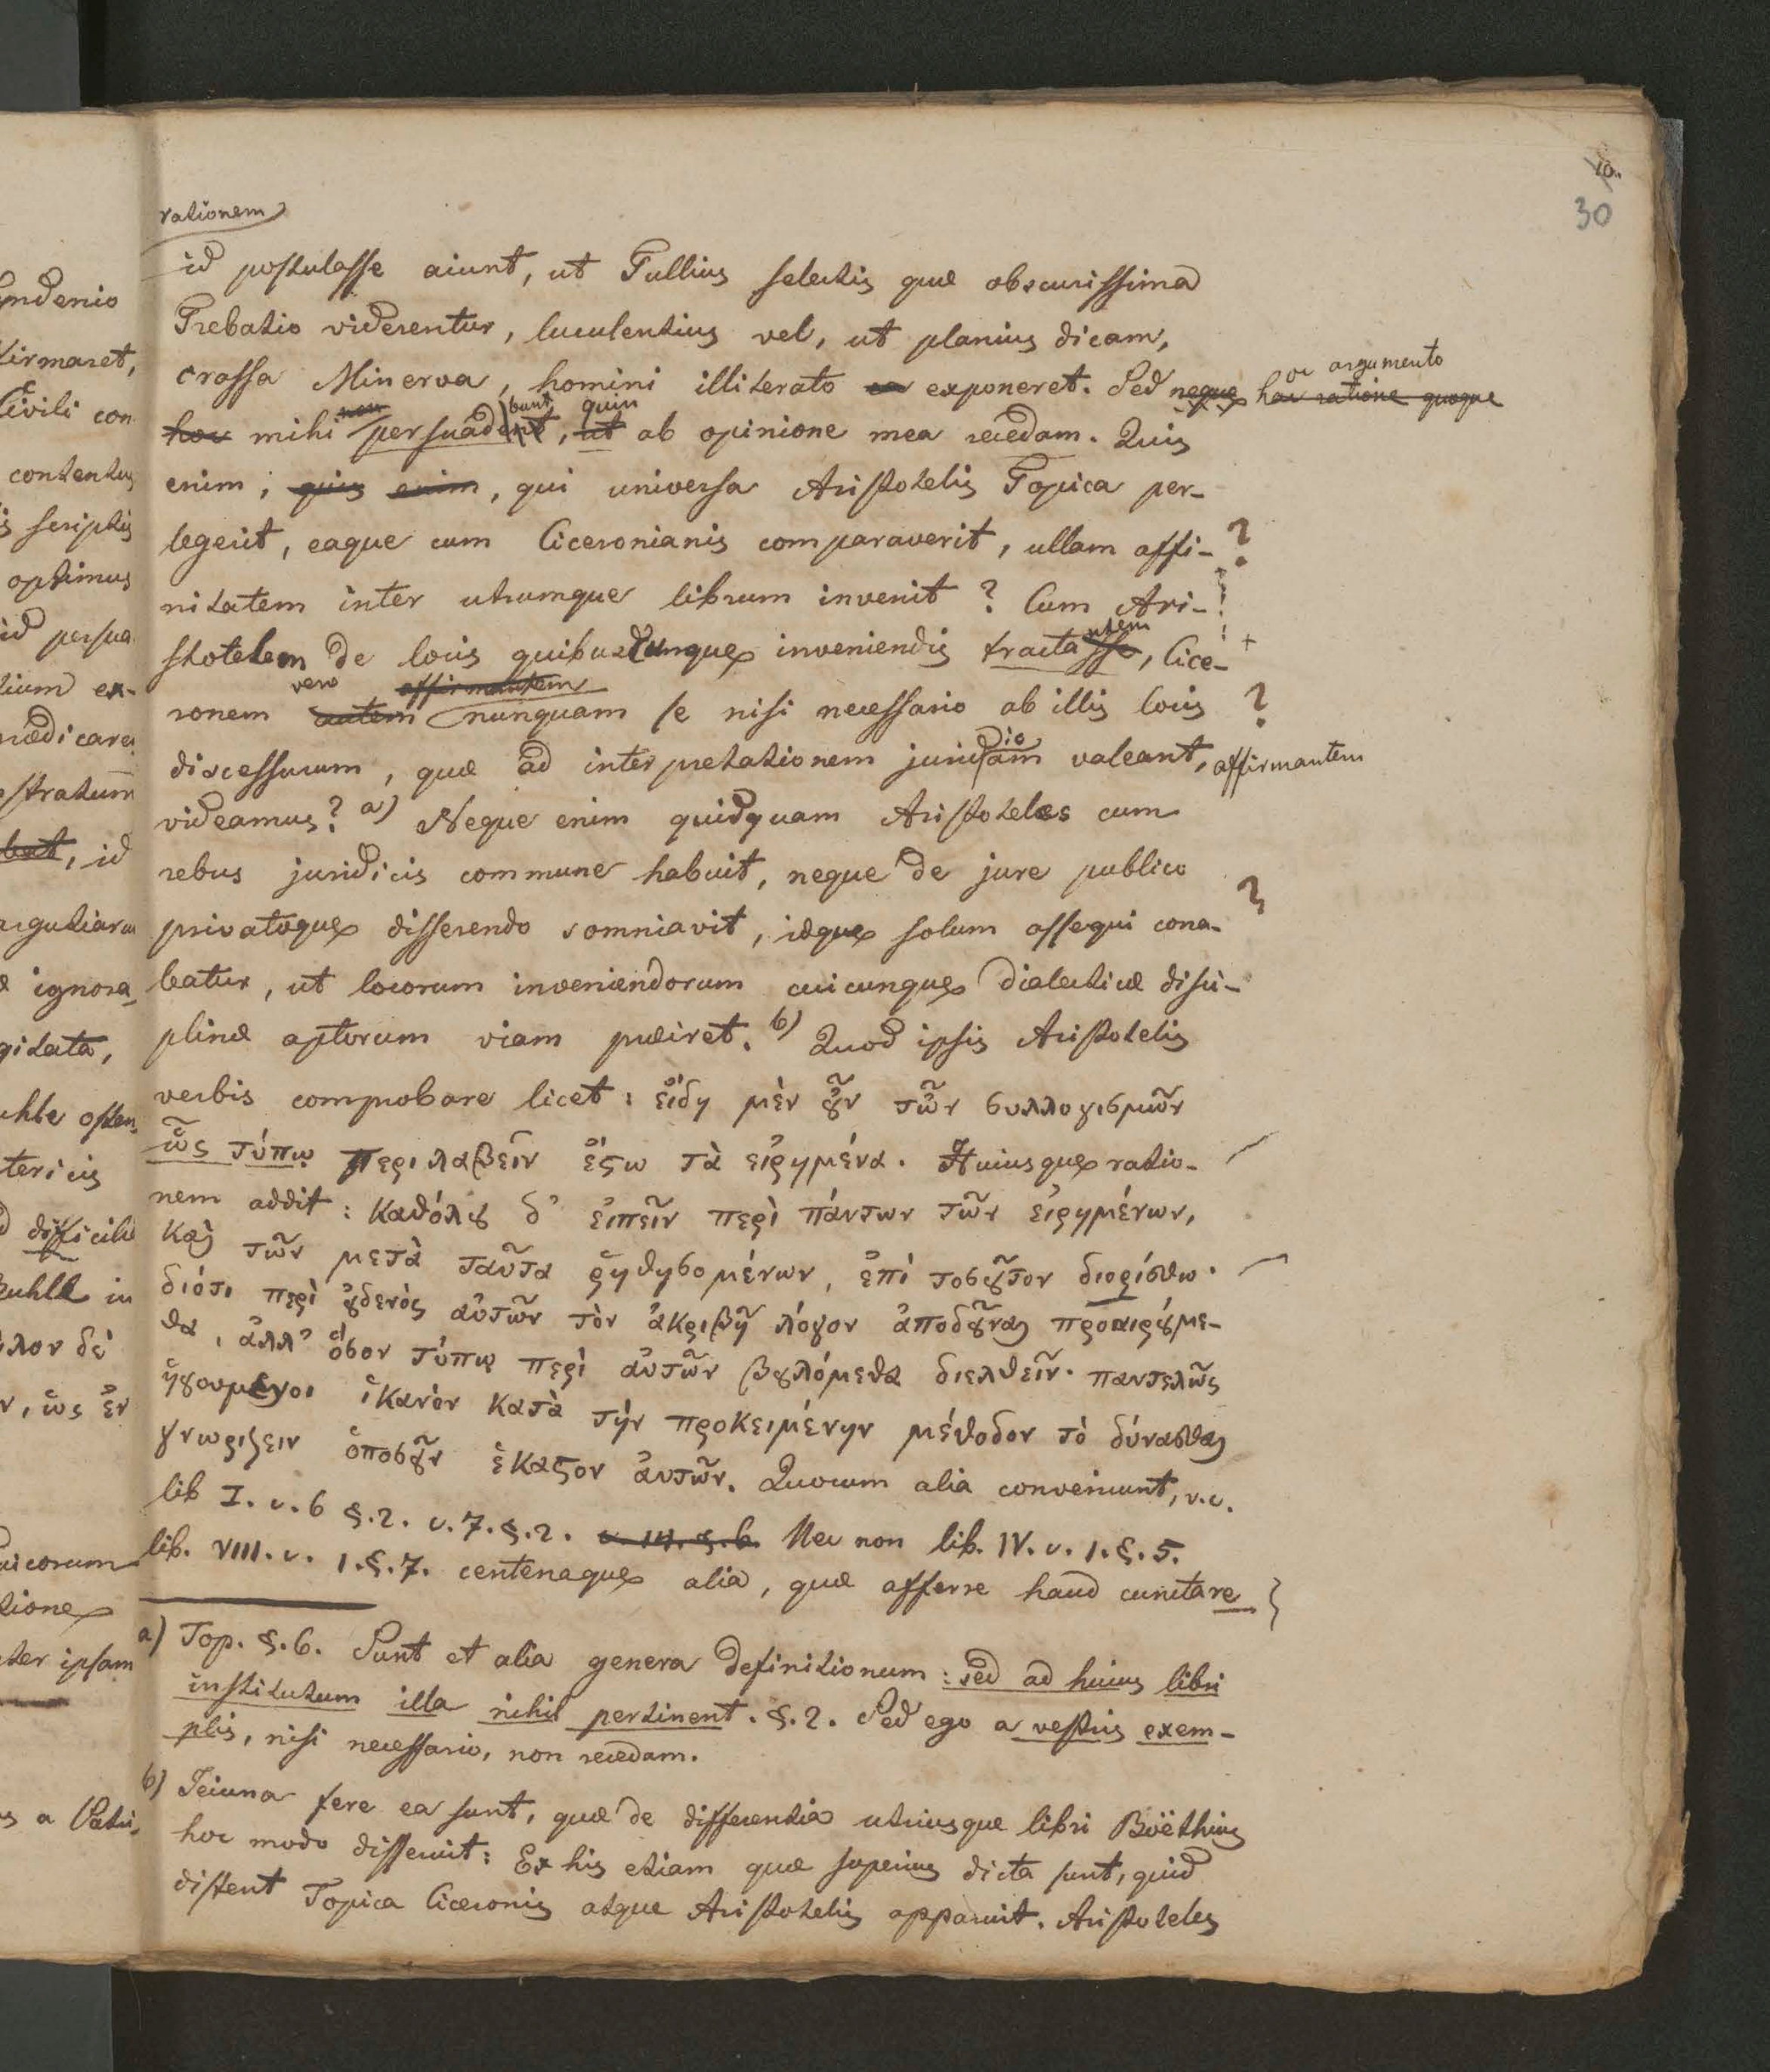 10.
30
rationem
id postulasse aiunt, ut Tullius selectis quæ obscurissima
Trebatio viderentur, luculentius vel, ut planius dicam,
crassa Minerva, homini illiterato ea exponeret. Sed neque hac ratione quoque
oc argumento
hoc mihi non persuadent, ut ab opinione mea recedam. Quis
bunt quin
enim, quis enim, qui universa Aristotelis Topica per-
legerit, eaque cum Ciceronianis comparaverit, ullam affi- ?
nitatem inter utrumque librum invenit? Cum Ari-
stotelem de locis quibuscunque inveniendis tractasse, Cice- +
ntem
vero affirmantem
ronem autem nunquam se nisi necessario ab illis locis ?
discessurum, quæ ad interpretationem juridicam valeant, affirmantem
videamus? a) Neque enim quidquam Aristoteles cum
rebus juridicis commune habuit, neque de jure publico
privatoque disserendo somniavit, idque solum assequi cona- ?
batur, ut locorum inveniendorum cuicunque dialecticæ disci-
plinæ aptorum viam præiret. b) Quod ipsis Aristotelis
verbis comprobare licet: εἴδη μὲν ȣ̓͂ν τῶν συλλογισμῶν
ὧς τύπῳ περιλαβεῖν ἔςω τὰ εἰρημένα. Huiusque ratio-
nem addit: καθόλȣ δ' εἰπεῖν περὶ πάντων τῶν εἰρημένων,
καὶ τῶν μετὰ ταῦτα ῥηθησομένων, ἐπὶ τοσȣ͂τον διορίσθω·
διότι περὶ ȣ̓δενὸς αὐτῶν τὸν ἀκριβῆ λόγον ἀποδȣ͂ναι προαιρȣ́με-
θα, ἀλλ' ὅσον τύπῳ περὶ αὐτῶν βȣλόμεθα διελθεῖν· παντελῶς
ἡγουμενοι ἱκανὸν κατὰ τὴν προκειμένην μέθοδον τὸ δύνασθαι
γνωριζειν ὁποσȣ͂ν ἕκαςον ἀυτῶν. Quocum alia conveniunt, v.c.
lib I. c. 6 §. 2. c. 7. §. 2. c. 14. §. 6. Nec non lib. IV. c. 1. §. 5.
lib. VIII. c. 1. §. 7. centenaque alia, quæ afferre haud cunctare
a) Top. §. 6. Sunt et alia genera definitionum: sed ad huius libri
institutum illa nihil pertinent. §. 2. Sed ego a vestris exem-
plis, nisi necessario, non recedam.
b) Jeiuna fere ea sunt, quæ de differentia utriusque libri Boëthius
hoc modo disseruit: Ex his etiam quæ superius dicta sunt, quid
distent Topica Ciceronis atque Aristotelis apparuit. Aristoteles